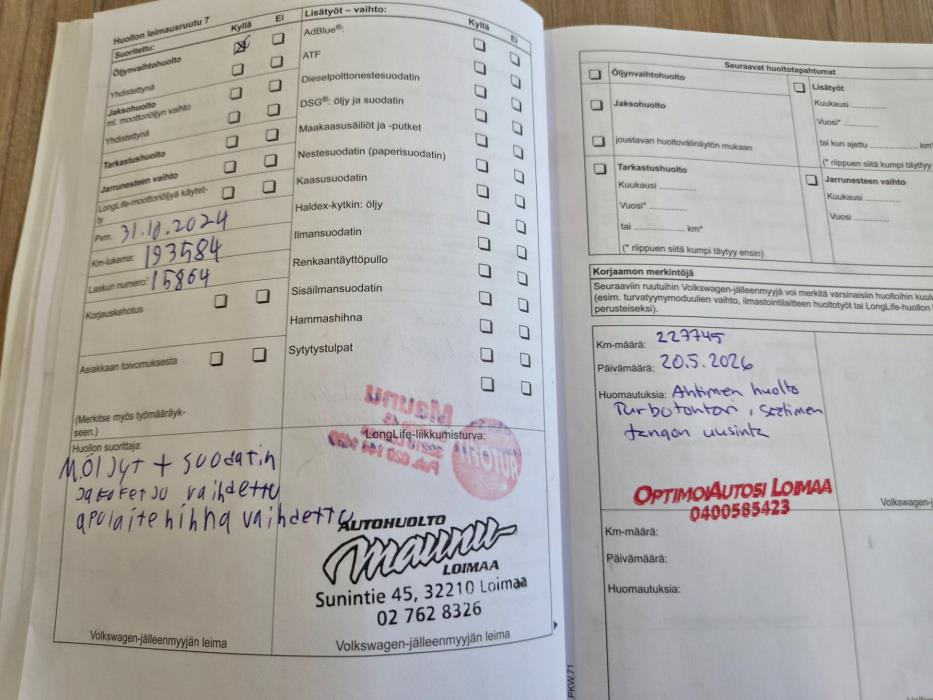 Huollon leimausruutu 7
Kyllä
Ei
Suoritettu:
Öljynvaihtohuolto
Yhdistettynä
Jaksohuolto
ml. moottoriöljyn vaihto
Yhdistettynä
Tarkastushuolto
Jarrunesteen vaihto
LongLife-moottoriöljyä käytet-
ty
Pvm. 31.10.2024
Km-lukema: 193584
Laskun numero: 15864
Korjauskehotus
Asiakkaan toivomuksesta
(Merkitse myös työmääräyk-
seen.)
Huollon suorittaja:
M.ÖLJYT + suodatin
Jakoketju vaihdettu
apulaitehihna vaihdettu
Volkswagen-jälleenmyyjän leima
Lisätyöt – vaihto:
Kyllä
Ei
AdBlue®:
ATF
Dieselpolttonestesuodatin
DSG®: öljy ja suodatin
Maakaasusäiliöt ja -putket
Nestesuodatin (paperisuodatin)
Kaasusuodatin
Haldex-kytkin: öljy
Ilmansuodatin
Renkaantäyttöpullo
Sisäilmansuodatin
Hammashihna
Sytytystulpat
LongLife-liikkumisturva:
AUTOHUOLTO
Maunu
LOIMAA
Sunintie 45, 32210 Loimaa
02 762 8326
Volkswagen-jälleenmyyjän leima
Seuraavat huoltotapahtumat
Öljynvaihtohuolto
Jaksohuolto
joustavan huoltovälinäytön mukaan
Tarkastushuolto
Kuukausi ............
Vuosi* ............
tai ............ km*
(* riippuen siitä kumpi täytyy ensin)
Lisätyöt
Kuukausi ............
Vuosi* ............
tai kun ajettu ............ km*
(* riippuen siitä kumpi täytyy
Jarrunesteen vaihto
Kuukausi ............
Vuosi ............
Korjaamon merkintöjä
Seuraaviin ruutuihin Volkswagen-jälleenmyyjä voi merkitä varsinaisiin huoltoihin kuulu
(esim. turvatyynymoduulien vaihto, ilmastointilaitteen huoltotyöt tai LongLife-huollon
perusteiseksi).
Km-määrä: 227745
Päivämäärä: 20.5.2026
Huomautuksia: Ahtimen huolto
Turbotohtori, säätimen
tangon uusinta
OPTIMOIAUTOSI LOIMAA
0400585423
Volkswagen-j
Km-määrä:
Päivämäärä:
Huomautuksia:
PKW.71